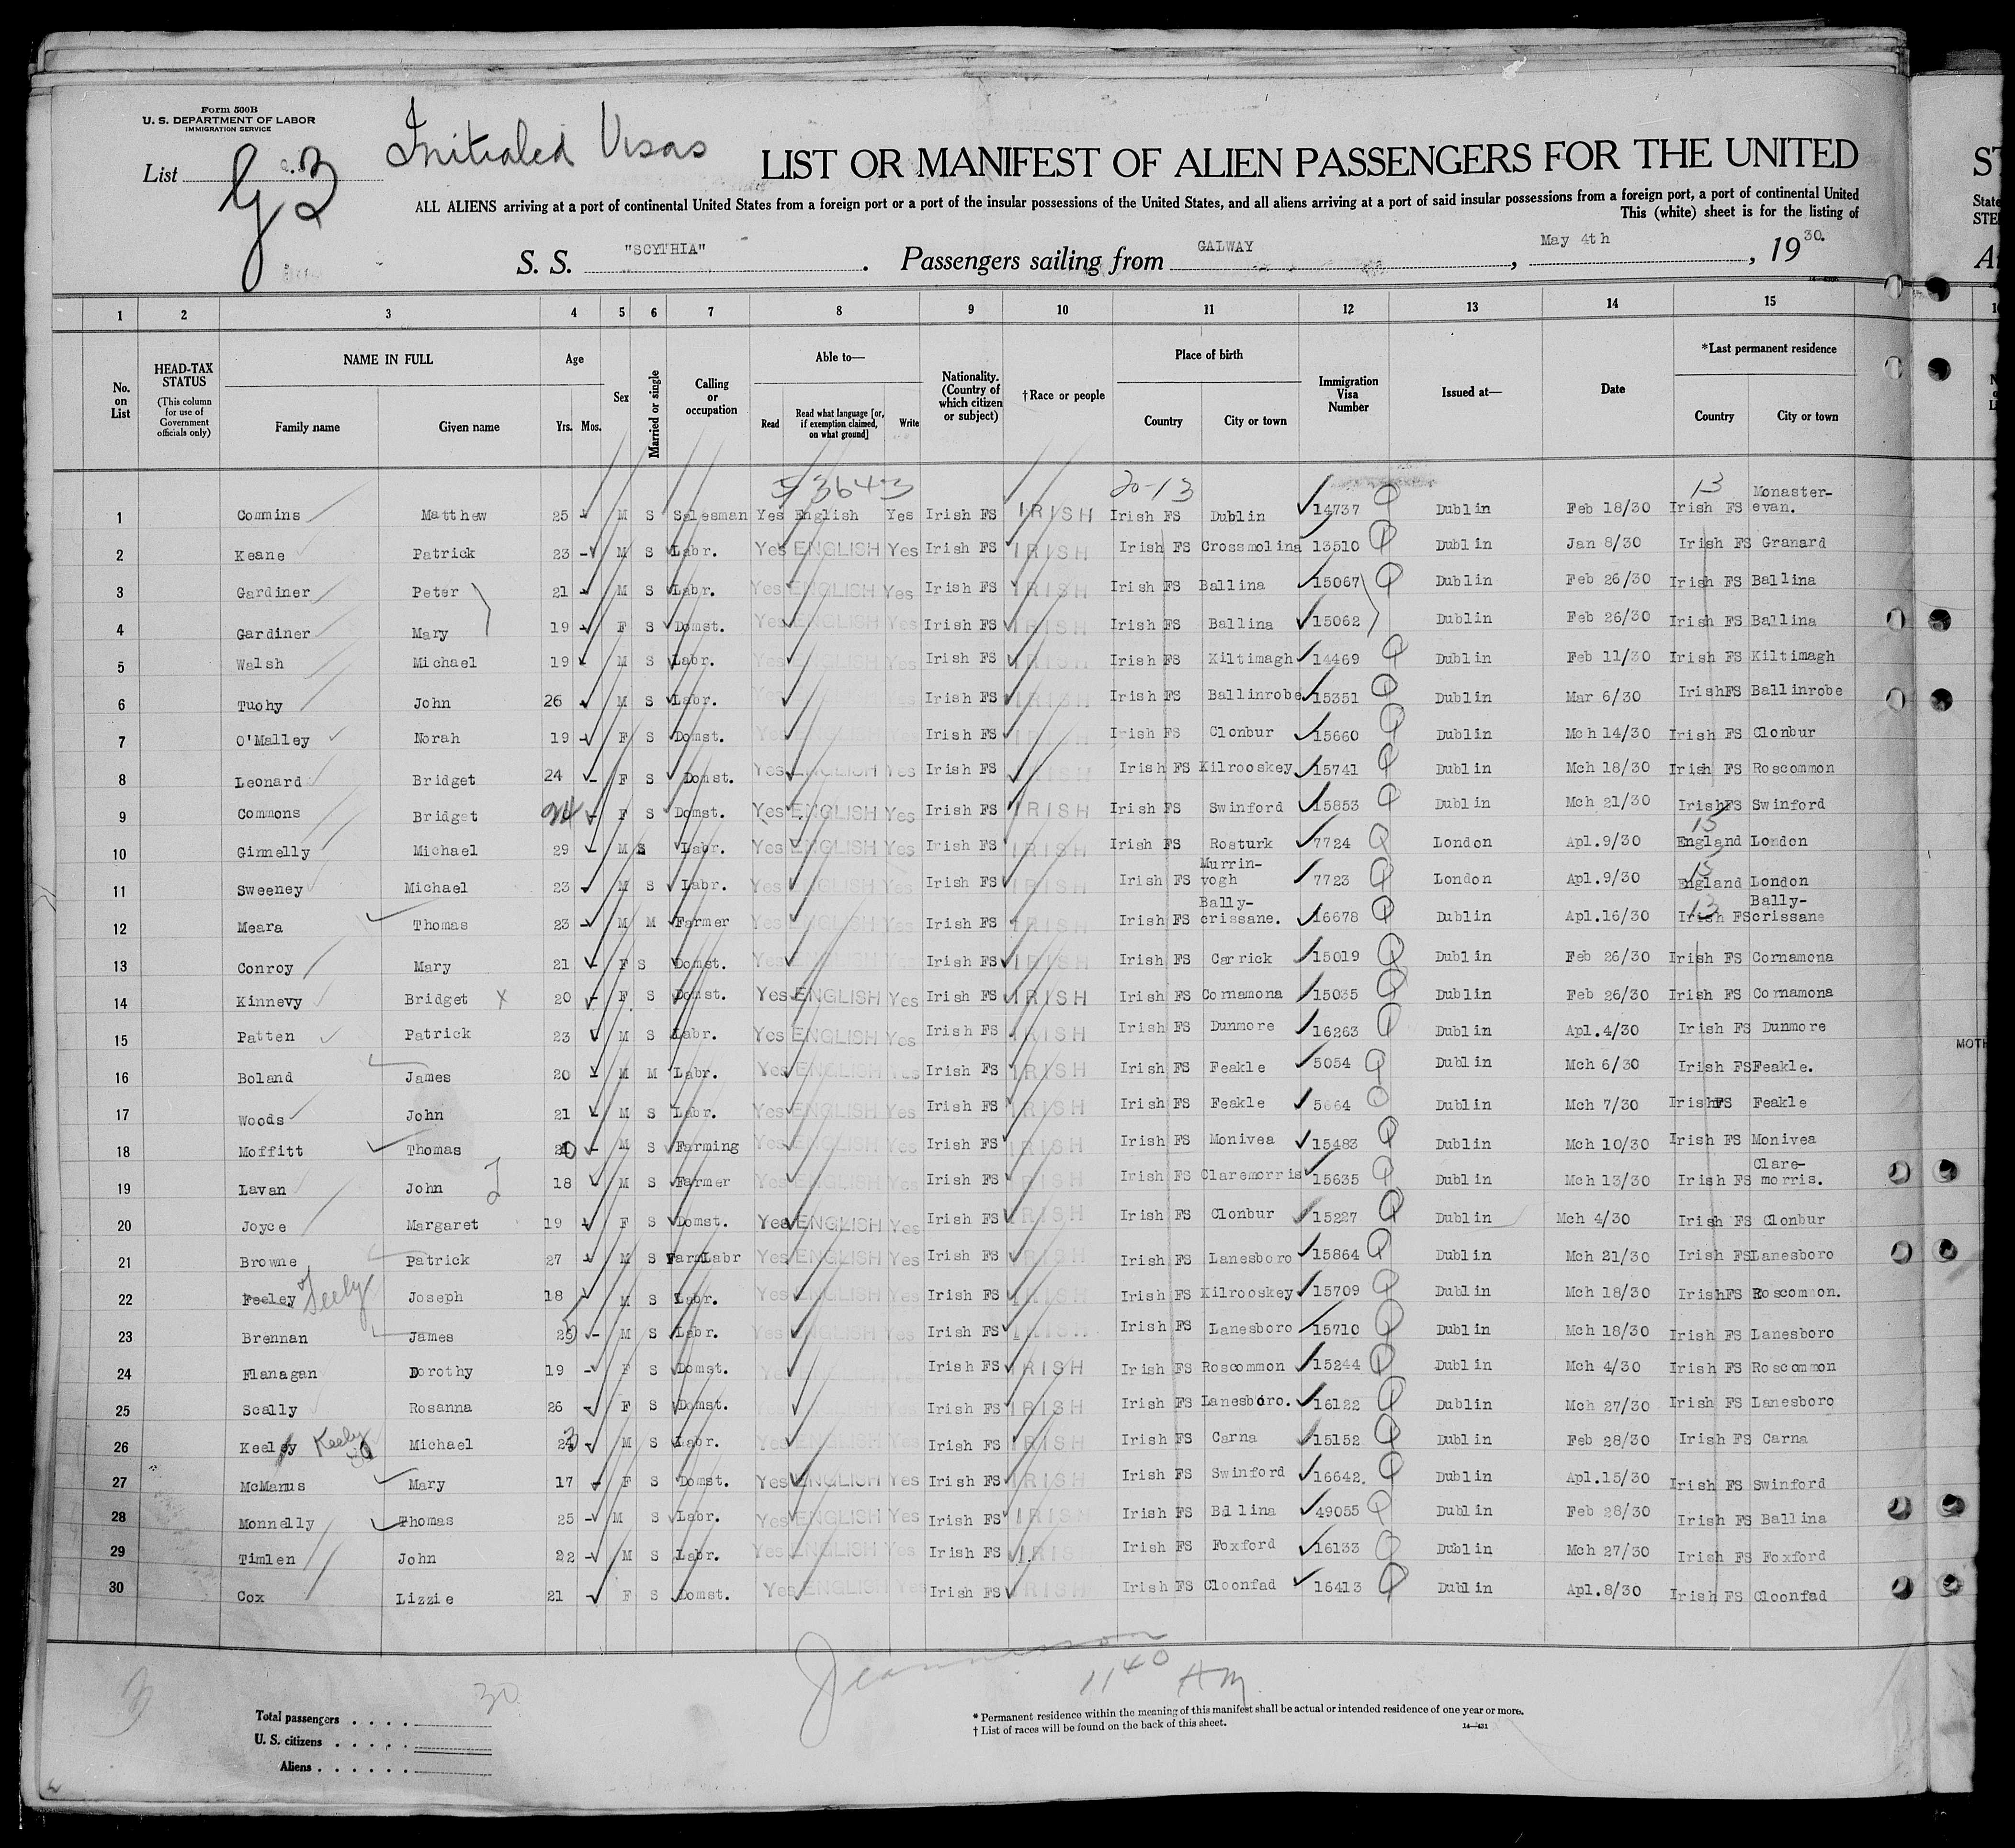 Form 500B
U. S. DEPARTMENT OF LABOR
IMMIGRATION SERVICE
List G 3
Initialed Visas
LIST OR MANIFEST OF ALIEN PASSENGERS FOR THE UNITED
ALL ALIENS arriving at a port of continental United States from a foreign port or a port of the insular possessions of the United States, and all aliens arriving at a port of said insular possessions from a foreign port, a port of continental United
This (white) sheet is for the listing of
S. S. "SCYTHIA" . Passengers sailing from GALWAY , May 4th , 19 30.
1 2 3 4 5 6 7 8 9 10 11 12 13 14 15
No. on List
HEAD-TAX STATUS
(This column for use of Government officials only)
NAME IN FULL
Family name Given name
Age
Yrs. Mos.
Sex
Married or single
Calling or occupation
Able to—
Read Read what language [or, if exemption claimed, on what ground] Write
Nationality. (Country of which citizen or subject)
†Race or people
Place of birth
Country City or town
Immigration Visa Number
Issued at—
Date
*Last permanent residence
Country City or town
53643 20-13 13
1 Commins Matthew 25 M S Salesman Yes English Yes Irish FS IRISH Irish FS Dublin 14737 Dublin Feb 18/30 Irish FS Monaster-evan.
2 Keane Patrick 23 M S Labr. Yes ENGLISH Yes Irish FS IRISH Irish FS Crossmolina 13510 Dublin Jan 8/30 Irish FS Granard
3 Gardiner Peter 21 M S Labr. Yes ENGLISH Yes Irish FS IRISH Irish FS Ballina 15067 Dublin Feb 26/30 Irish FS Ballina
4 Gardiner Mary 19 F S Domst. Yes ENGLISH Yes Irish FS IRISH Irish FS Ballina 15062 Dublin Feb 26/30 Irish FS Ballina
5 Walsh Michael 19 M S Labr. Yes ENGLISH Yes Irish FS IRISH Irish FS Kiltimagh 14469 Dublin Feb 11/30 Irish FS Kiltimagh
6 Tuohy John 26 M S Labr. Irish FS IRISH Irish FS Ballinrobe 15351 Dublin Mar 6/30 IrishFS Ballinrobe
7 O'Malley Norah 19 F S Domst. Yes ENGLISH Yes Irish FS IRISH Irish FS Clonbur 15660 Dublin Mch 14/30 Irish FS Clonbur
8 Leonard Bridget 24 F S Domst. Yes ENGLISH Yes Irish FS IRISH Irish FS Kilrooskey 15741 Dublin Mch 18/30 Irish FS Roscommon
9 Commons Bridget 24 F S Domst. Yes ENGLISH Yes Irish FS IRISH Irish FS Swinford 15853 Dublin Mch 21/30 IrishFS Swinford
10 Ginnelly Michael 29 M S Labr. Yes ENGLISH Yes Irish FS IRISH Irish FS Rosturk 7724 London Apl.9/30 England London
11 Sweeney Michael 23 M S Labr. Yes ENGLISH Yes Irish FS IRISH Irish FS Murrin-vogh 7723 London Apl.9/30 England London
12 Meara Thomas 23 M M Farmer Yes ENGLISH Yes Irish FS IRISH Irish FS Bally-crissane. 16678 Dublin Apl.16/30 Irish FS Bally-crissane
13 Conroy Mary 21 F S Domst. Yes ENGLISH Yes Irish FS IRISH Irish FS Carrick 15019 Dublin Feb 26/30 Irish FS Cornamona
14 Kinnevy Bridget X 20 F S Domst. Yes ENGLISH Yes Irish FS IRISH Irish FS Cornamona 15035 Dublin Feb 26/30 Irish FS Cornamona
15 Patten Patrick 23 M S Labr. Yes ENGLISH Yes Irish FS IRISH Irish FS Dunmore 16263 Dublin Apl.4/30 Irish FS Dunmore
16 Boland James 20 M M Labr. Yes ENGLISH Yes Irish FS IRISH Irish FS Feakle 5054 Dublin Mch 6/30 Irish FS Feakle.
17 Woods John 21 M S Labr. Yes ENGLISH Yes Irish FS IRISH Irish FS Feakle 5664 Dublin Mch 7/30 IrishFS Feakle
18 Moffitt Thomas M S Farming Yes ENGLISH Yes Irish FS IRISH Irish FS Monivea 15483 Dublin Mch 10/30 Irish FS Monivea
19 Lavan John 18 M S Farmer Yes ENGLISH Yes Irish FS IRISH Irish FS Claremorris 15635 Dublin Mch 13/30 Irish FS Clare-morris.
20 Joyce Margaret 19 F S Domst. Yes ENGLISH Yes Irish FS IRISH Irish FS Clonbur 15227 Dublin Mch 4/30 Irish FS Clonbur
21 Browne Patrick 27 M S FarmLabr Yes ENGLISH Yes Irish FS IRISH Irish FS Lanesboro 15864 Dublin Mch 21/30 Irish FS Lanesboro
22 Feeley Feely Joseph 18 M S Labr. Yes ENGLISH Yes Irish FS IRISH Irish FS Kilrooskey 15709 Dublin Mch 18/30 IrishFS Roscommon.
23 Brennan James 25 M S Labr. Yes ENGLISH Yes Irish FS IRISH Irish FS Lanesboro 15710 Dublin Mch 18/30 Irish FS Lanesboro
24 Flanagan Dorothy 19 F S Domst. Irish FS IRISH Irish FS Roscommon 15244 Dublin Mch 4/30 Irish FS Roscommon
25 Scally Rosanna 26 F S Domst. Yes ENGLISH Yes Irish FS IRISH Irish FS Lanesboro. 16122 Dublin Mch 27/30 Irish FS Lanesboro
26 Keeley Keely Michael M S Labr. Yes ENGLISH Yes Irish FS IRISH Irish FS Carna 15152 Dublin Feb 28/30 Irish FS Carna
27 McManus Mary 17 F S Domst. Yes ENGLISH Yes Irish FS IRISH Irish FS Swinford 16642. Dublin Apl.15/30 Irish FS Swinford
28 Monnelly Thomas 25 M S Labr. Yes ENGLISH Yes Irish FS IRISH Irish FS Ballina 49055 Dublin Feb 28/30 Irish FS Ballina
29 Timlen John 22 M S Labr. Yes ENGLISH Yes Irish FS IRISH Irish FS Foxford 16133 Dublin Mch 27/30 Irish FS Foxford
30 Cox Lizzie 21 F S Domst. Yes ENGLISH Yes Irish FS IRISH Irish FS Cloonfad 16413 Dublin Apl.8/30 Irish FS Cloonfad
11 40 AM
Total passengers . . . . 30
U. S. citizens . . . . .
Aliens . . . . . .
* Permanent residence within the meaning of this manifest shall be actual or intended residence of one year or more.
† List of races will be found on the back of this sheet.
14—431